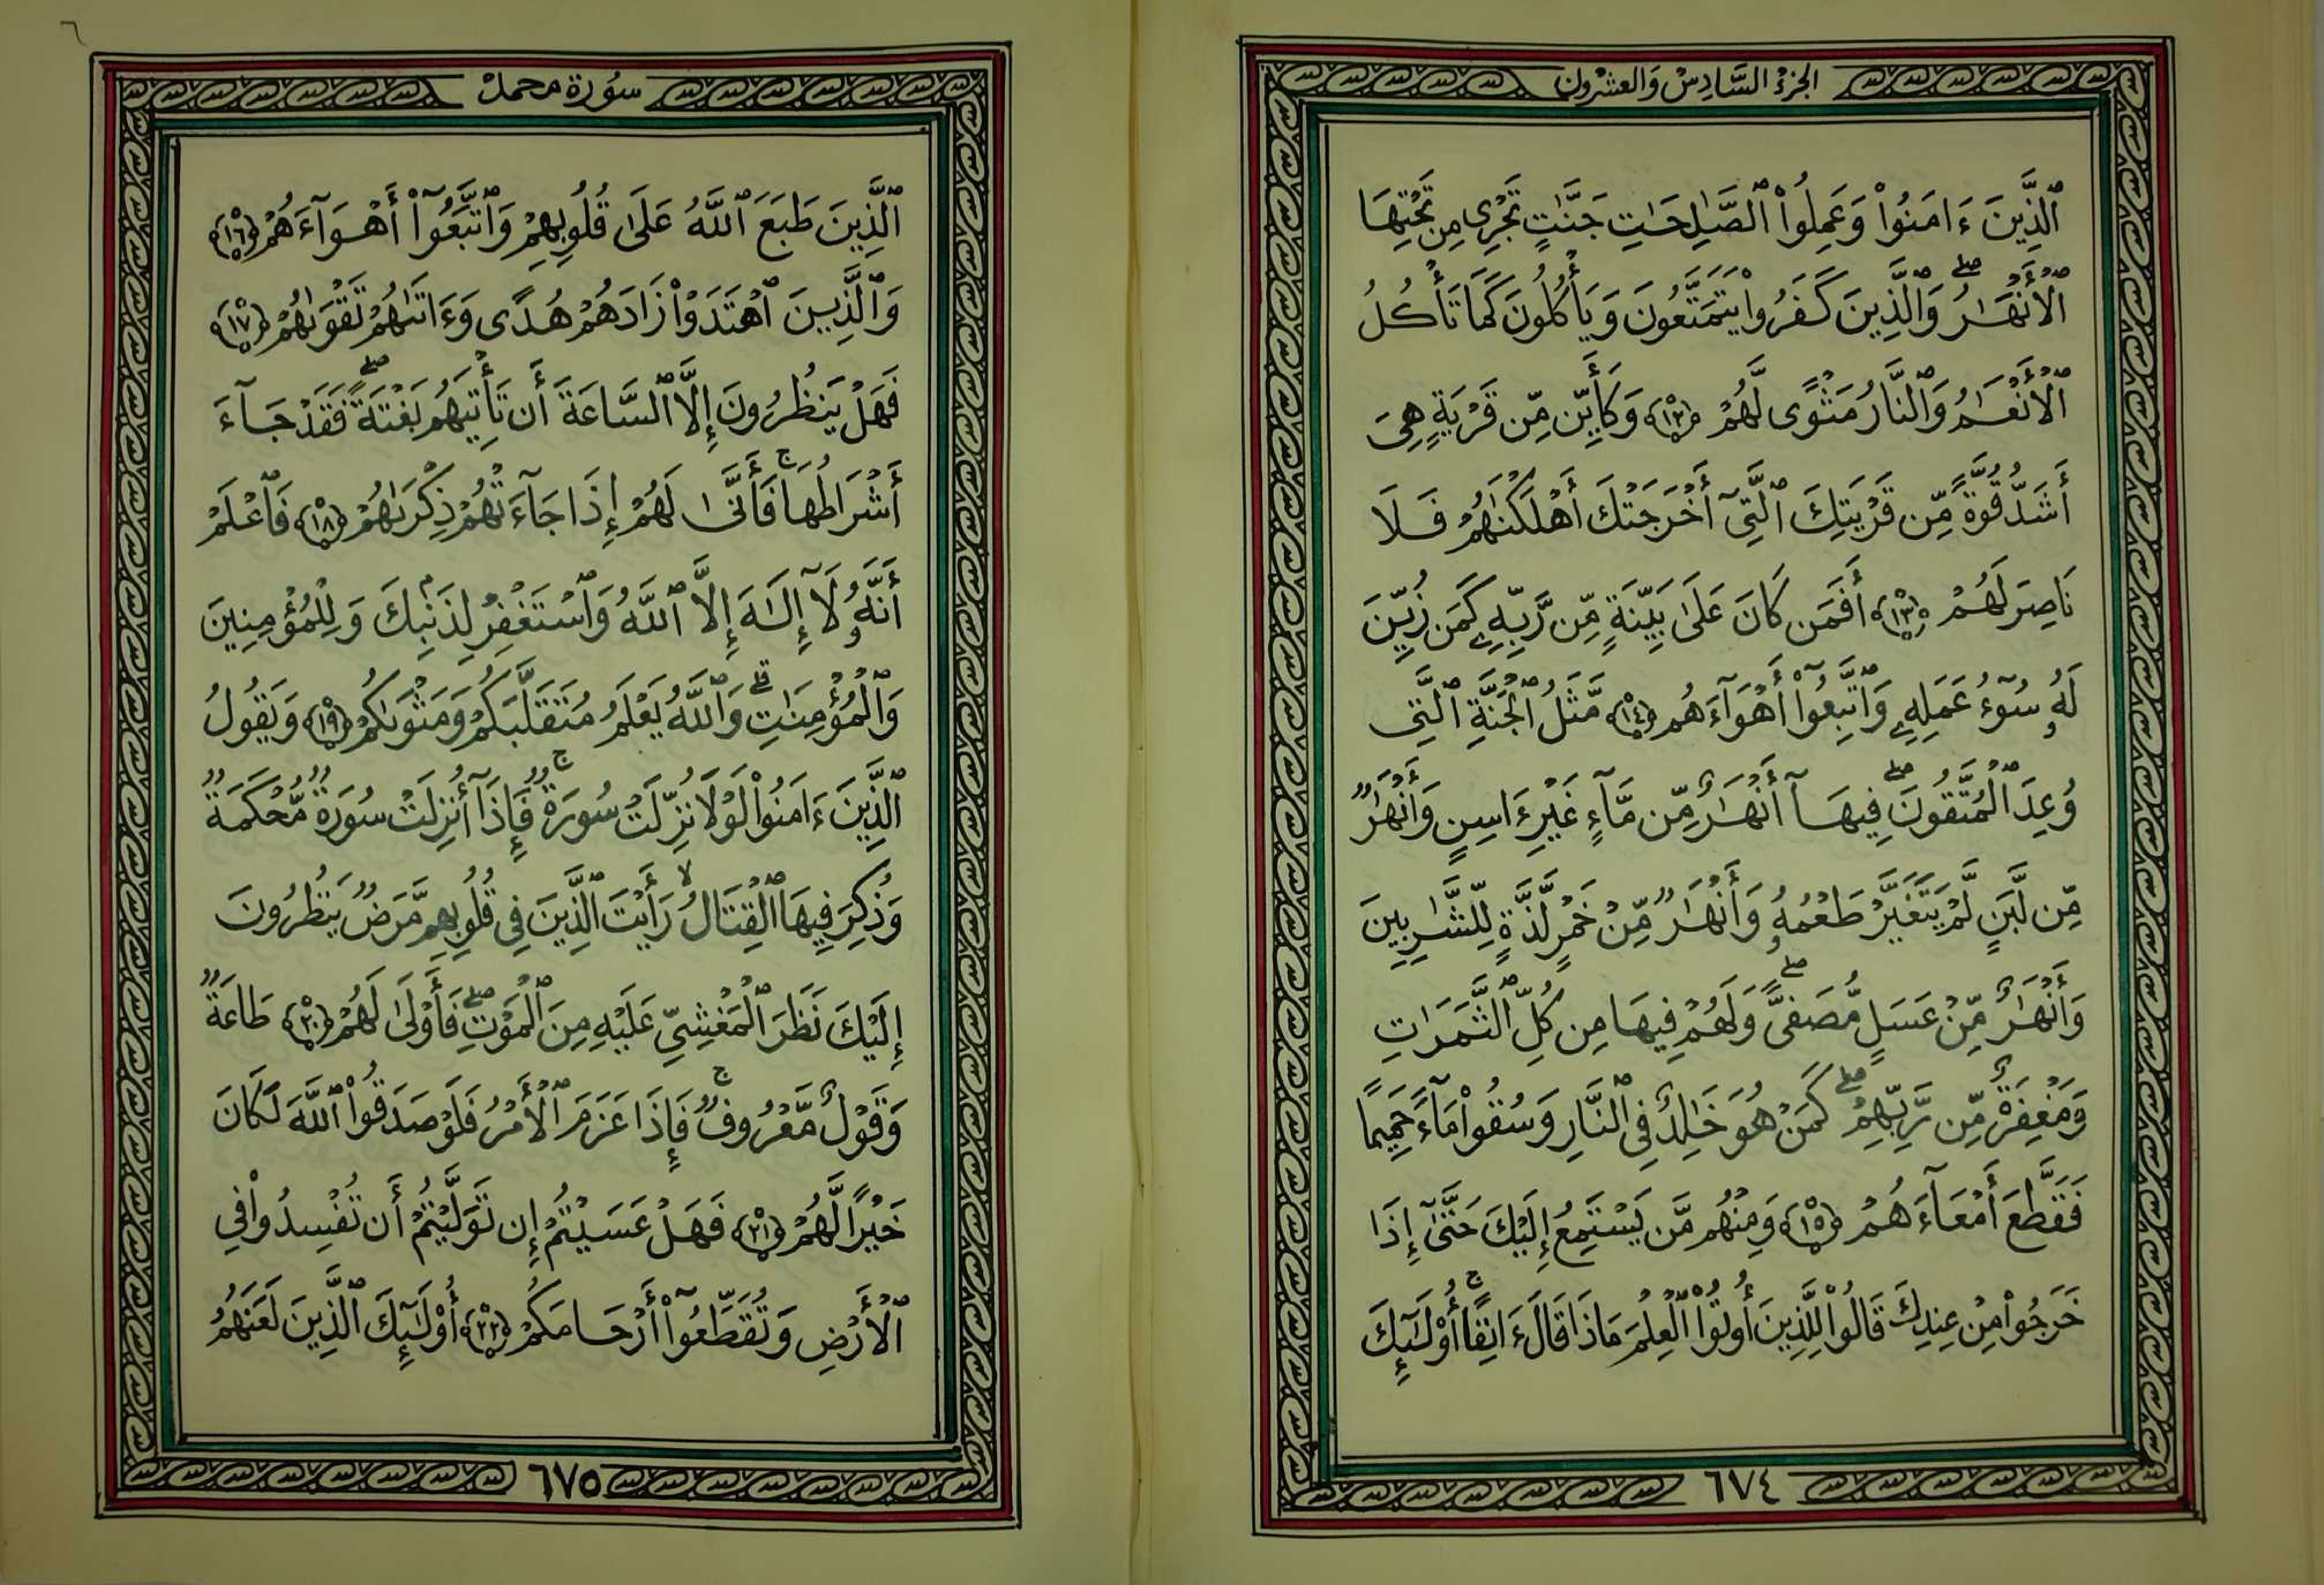 الجزء السَّادِسْ وَالعشرون
ٱلَّذِينَ ءَامَنُوا۟ وَعَمِلُوا۟ ٱلصَّٰلِحَٰتِ جَنَّٰتٍ تَجْرِى مِن تَحْتِهَا
ٱلْأَنْهَٰرُ ۖ وَٱلَّذِينَ كَفَرُوا۟ يَتَمَتَّعُونَ وَيَأْكُلُونَ كَمَا تَأْكُلُ
ٱلْأَنْعَٰمُ وَٱلنَّارُ مَثْوًى لَّهُمْ ﴿١٢﴾ وَكَأَيِّن مِّن قَرْيَةٍ هِىَ
أَشَدُّ قُوَّةً مِّن قَرْيَتِكَ ٱلَّتِىٓ أَخْرَجَتْكَ أَهْلَكْنَٰهُمْ فَلَا
نَاصِرَ لَهُمْ ﴿١٣﴾ أَفَمَن كَانَ عَلَىٰ بَيِّنَةٍ مِّن رَّبِّهِۦ كَمَن زُيِّنَ
لَهُۥ سُوٓءُ عَمَلِهِۦ وَٱتَّبَعُوٓا۟ أَهْوَآءَهُم ﴿١٤﴾ مَّثَلُ ٱلْجَنَّةِ ٱلَّتِى
وُعِدَ ٱلْمُتَّقُونَ ۖ فِيهَآ أَنْهَٰرٌ مِّن مَّآءٍ غَيْرِ ءَاسِنٍ وَأَنْهَٰرٌ
مِّن لَّبَنٍ لَّمْ يَتَغَيَّرْ طَعْمُهُۥ وَأَنْهَٰرٌ مِّنْ خَمْرٍ لَّذَّةٍ لِّلشَّٰرِبِينَ
وَأَنْهَٰرٌ مِّنْ عَسَلٍ مُّصَفًّى ۖ وَلَهُمْ فِيهَا مِن كُلِّ ٱلثَّمَرَٰتِ
وَمَغْفِرَةٌ مِّن رَّبِّهِمْ ۖ كَمَنْ هُوَ خَٰلِدٌ فِى ٱلنَّارِ وَسُقُوا۟ مَآءً حَمِيمًا
فَقَطَّعَ أَمْعَآءَهُمْ ﴿١٥﴾ وَمِنْهُم مَّن يَسْتَمِعُ إِلَيْكَ حَتَّىٰٓ إِذَا
خَرَجُوا۟ مِنْ عِندِكَ قَالُوا۟ لِلَّذِينَ أُوتُوا۟ ٱلْعِلْمَ مَاذَا قَالَ ءَانِفًا ۚ أُو۟لَٰٓئِكَ
٦٧٤
سُورة محمد
ٱلَّذِينَ طَبَعَ ٱللَّهُ عَلَىٰ قُلُوبِهِمْ وَٱتَّبَعُوٓا۟ أَهْوَآءَهُمْ ﴿١٦﴾
وَٱلَّذِينَ ٱهْتَدَوْا۟ زَادَهُمْ هُدًى وَءَاتَىٰهُمْ تَقْوَىٰهُمْ ﴿١٧﴾
فَهَلْ يَنظُرُونَ إِلَّا ٱلسَّاعَةَ أَن تَأْتِيَهُم بَغْتَةً ۖ فَقَدْ جَآءَ
أَشْرَاطُهَا ۚ فَأَنَّىٰ لَهُمْ إِذَا جَآءَتْهُمْ ذِكْرَىٰهُمْ ﴿١٨﴾ فَٱعْلَمْ
أَنَّهُۥ لَآ إِلَٰهَ إِلَّا ٱللَّهُ وَٱسْتَغْفِرْ لِذَنۢبِكَ وَلِلْمُؤْمِنِينَ
وَٱلْمُؤْمِنَٰتِ ۗ وَٱللَّهُ يَعْلَمُ مُتَقَلَّبَكُمْ وَمَثْوَىٰكُمْ ﴿١٩﴾ وَيَقُولُ
ٱلَّذِينَ ءَامَنُوا۟ لَوْلَا نُزِّلَتْ سُورَةٌ ۖ فَإِذَآ أُنزِلَتْ سُورَةٌ مُّحْكَمَةٌ
وَذُكِرَ فِيهَا ٱلْقِتَالُ ۙ رَأَيْتَ ٱلَّذِينَ فِى قُلُوبِهِم مَّرَضٌ يَنظُرُونَ
إِلَيْكَ نَظَرَ ٱلْمَغْشِىِّ عَلَيْهِ مِنَ ٱلْمَوْتِ ۖ فَأَوْلَىٰ لَهُمْ ﴿٢٠﴾ طَاعَةٌ
وَقَوْلٌ مَّعْرُوفٌ ۚ فَإِذَا عَزَمَ ٱلْأَمْرُ فَلَوْ صَدَقُوا۟ ٱللَّهَ لَكَانَ
خَيْرًا لَّهُمْ ﴿٢١﴾ فَهَلْ عَسَيْتُمْ إِن تَوَلَّيْتُمْ أَن تُفْسِدُوا۟ فِى
ٱلْأَرْضِ وَتُقَطِّعُوٓا۟ أَرْحَامَكُمْ ﴿٢٢﴾ أُو۟لَٰٓئِكَ ٱلَّذِينَ لَعَنَهُمُ
٦٧٥